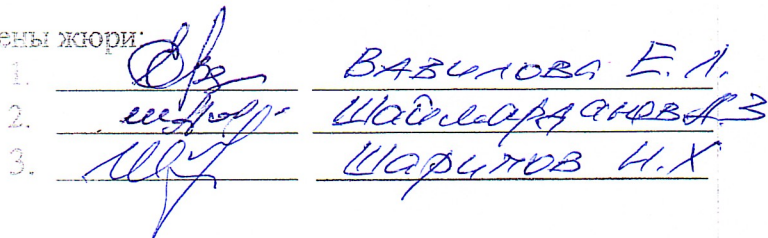 ены жюри:
1. Вавилова Е. Л.
2. Шаймарданов А З
3. Шарипов Н. Х